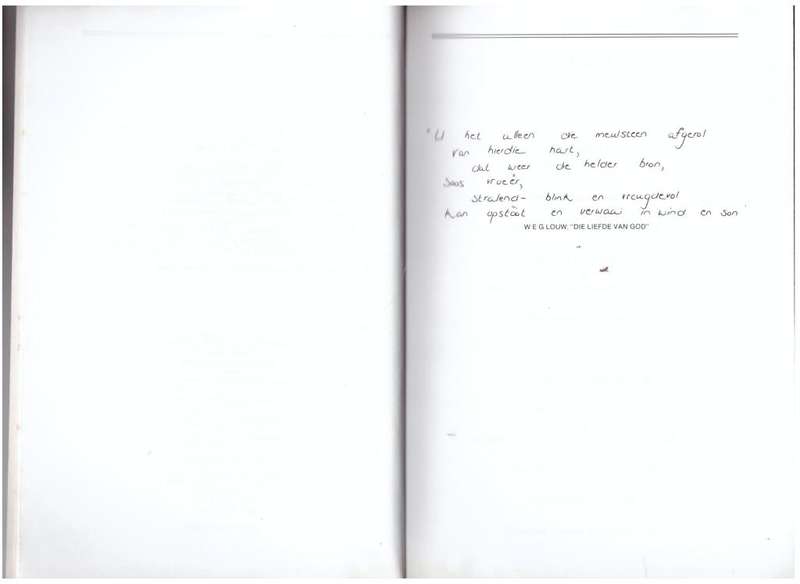 "U het alleen die meulsteen afgerol
van hierdie hart,
dat weer die helder bron,
soos vroeër,
stralend- blink en vreugdevol
kan opstoot en verwaai in wind en son
W E G LOUW: "DIE LIEFDE VAN GOD"